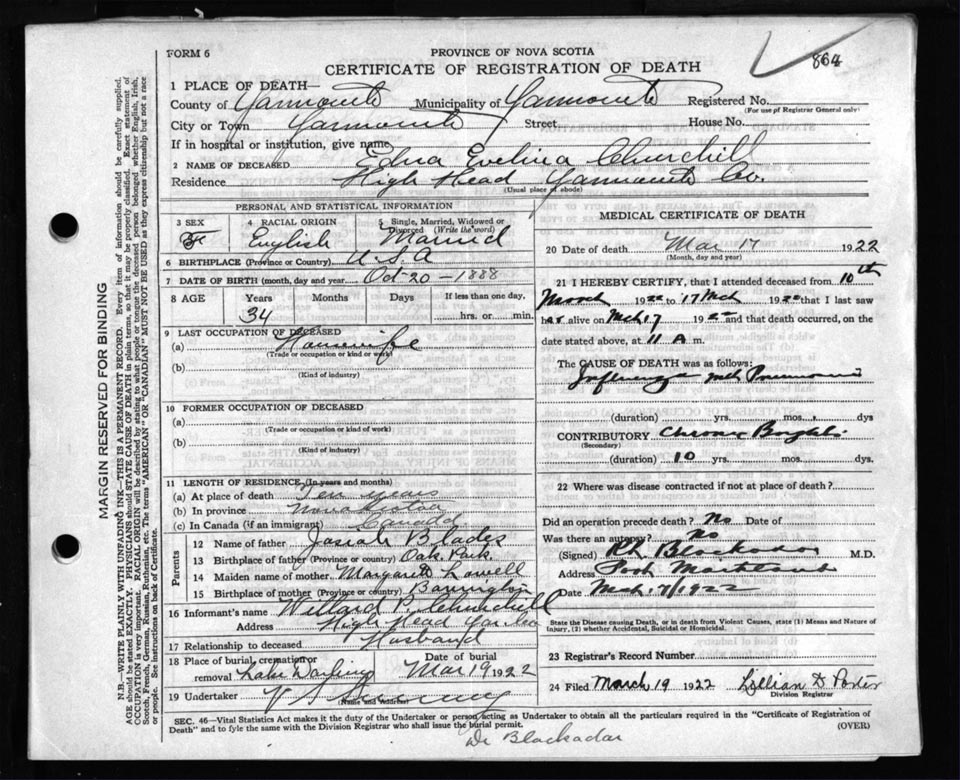 864
FORM 6
PROVINCE OF NOVA SCOTIA
CERTIFICATE OF REGISTRATION OF DEATH
1 PLACE OF DEATH—
County of Yarmouth Municipality of Yarmouth Registered No.
(For use of Registrar General only)
City or Town Yarmouth Street House No.
If in hospital or institution, give name
2 NAME OF DECEASED Edna Evelina Churchill
Residence High Head Yarmouth Co.
(Usual place of abode)
PERSONAL AND STATISTICAL INFORMATION
3 SEX F
4 RACIAL ORIGIN English
5 Single, Married, Widowed or Divorced (Write the word) Married
6 BIRTHPLACE (Province or Country) U.S.A
7 DATE OF BIRTH (month, day and year) Oct 20 - 1888
8 AGE Years Months Days If less than one day,
34 hrs. or min.
9 LAST OCCUPATION OF DECEASED
(a) Housewife
(Trade or occupation or kind of work)
(b)
(Kind of industry)
10 FORMER OCCUPATION OF DECEASED
(a)
(Trade or occupation or kind of work)
(b)
(Kind of industry)
11 LENGTH OF RESIDENCE (In years and months)
(a) At place of death Ten years
(b) In province Nova Scotia
(c) In Canada (if an immigrant) Canada
Parents
12 Name of father Josiah Blades
13 Birthplace of father (Province or country) Oak Park
14 Maiden name of mother Margaret Lowell
15 Birthplace of mother (Province or country) Barrington
16 Informant's name Willard P. Churchill
Address High Head Yar Co
17 Relationship to deceased Husband
18 Place of burial, cremation or removal Lake Darling Date of burial Mar 19 1922
19 Undertaker V S Sweeney
(Name and Address)
MEDICAL CERTIFICATE OF DEATH
20 Date of death Mar 17 1922
(Month, day and year)
21 I HEREBY CERTIFY, that I attended deceased from 10th
March 1922 to 17 Mch 1922 that I last saw
her alive on Mch 17 1922 and that death occurred, on
date stated above, at 11 A m.
The CAUSE OF DEATH was as follows:
Influenza Pneumonia
(duration) yrs. mos. dys
CONTRIBUTORY Chronic Brights
(Secondary)
(duration) 10 yrs. mos. dys
22 Where was disease contracted if not at place of death?
Did an operation precede death? No Date of
Was there an autopsy? No
(Signed) Blackadar M.D.
Address Port Maitland
Date Mch. 17/1922
State the Disease causing Death, or in death from Violent Causes, state (1) Means and Nature of
Injury, (2) whether Accidental, Suicidal or Homicidal.
23 Registrar's Record Number
24 Filed March 19 1922 Lillian D Porter
Division Registrar
SEC. 46—Vital Statistics Act makes it the duty of the Undertaker or person acting as Undertaker to obtain all the particulars required in the "Certificate of Registration of
Death" and to fyle the same with the Division Registrar who shall issue the burial permit. (OVER)
Dr Blackadar
MARGIN RESERVED FOR BINDING
N.B.—WRITE PLAINLY WITH UNFADING INK—THIS IS A PERMANENT RECORD. Every item of information should be carefully supplied.
AGE should be stated EXACTLY. PHYSICIANS should STATE CAUSE OF DEATH in plain terms, so that it may be properly classified. Exact statement of
OCCUPATION is very important. RACIAL ORIGIN will be described by stating to what people or tongue the deceased person belonged whether English, Irish,
Scotch, French, German, Russian, Ruthenian, etc. The terms "AMERICAN" OR "CANADIAN" MUST NOT BE USED as they express citizenship but not a race
or people. See instructions on back of Certificate.